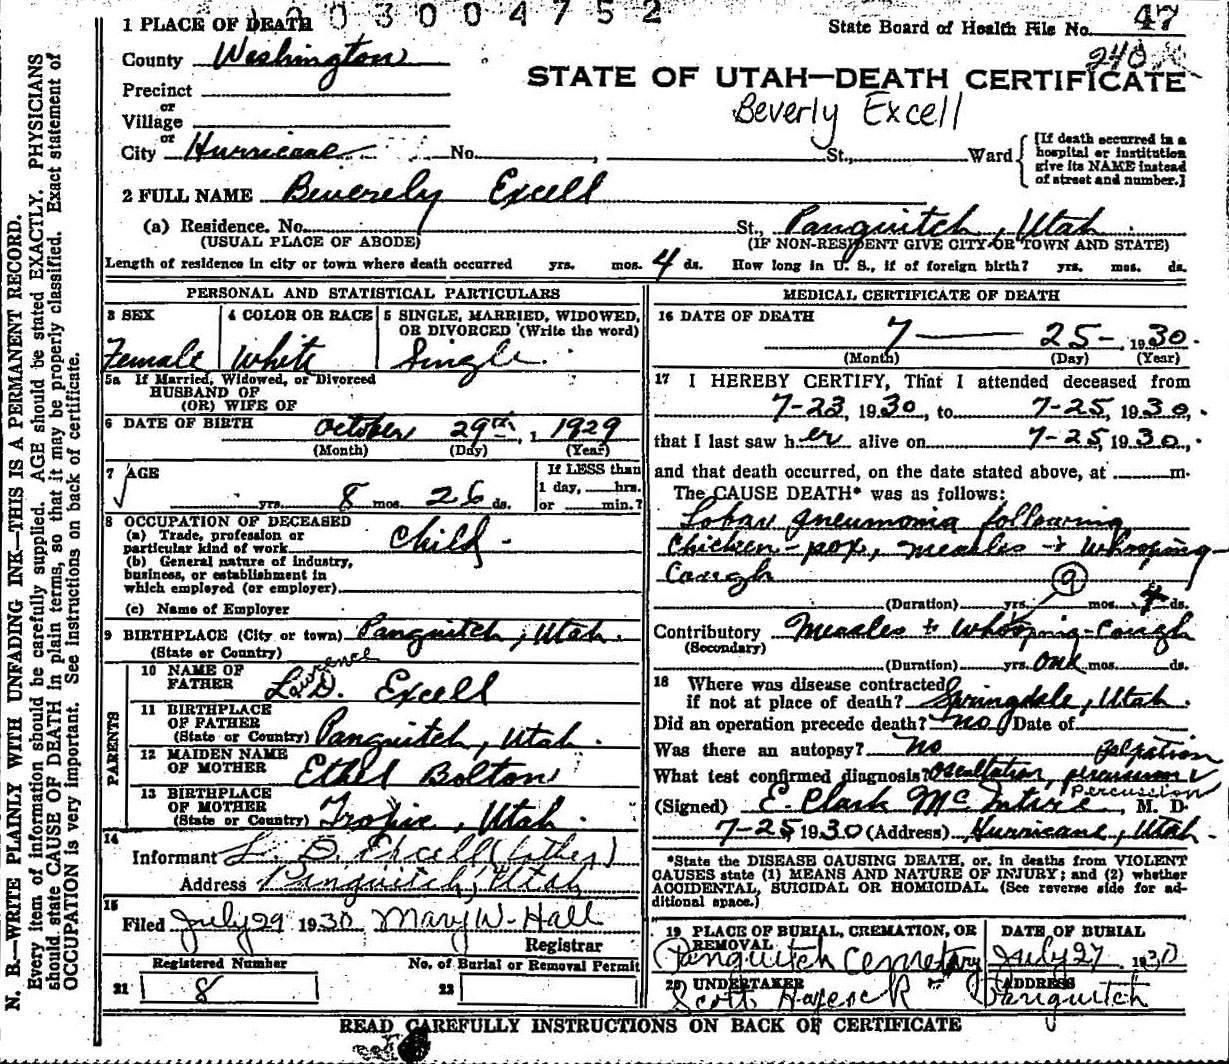 003004752
1 PLACE OF DEATH
State Board of Health File No. 47
County Washington
240
STATE OF UTAH—DEATH CERTIFICATE
Precinct
or
Village
Beverly Excell
or
City Hurricane No. St., Ward
[If death occurred in a hospital or institution give its NAME instead of street and number.]
2 FULL NAME Beverely Excell
(a) Residence. No. St., Panguitch, Utah
(USUAL PLACE OF ABODE) (IF NON-RESIDENT GIVE CITY OR TOWN AND STATE)
Length of residence in city or town where death occurred yrs. mos. 4 ds. How long in U. S., if of foreign birth? yrs. mos. ds.
PERSONAL AND STATISTICAL PARTICULARS
3 SEX 4 COLOR OR RACE 5 SINGLE, MARRIED, WIDOWED,
OR DIVORCED (Write the word)
Female White Single
5a If Married, Widowed, or Divorced
HUSBAND OF
(OR) WIFE OF
6 DATE OF BIRTH October 29th, 1929
(Month) (Day) (Year)
7 AGE
If LESS than
1 day, hrs.
or min.?
yrs. 8 mos 26 ds.
8 OCCUPATION OF DECEASED
(a) Trade, profession or
particular kind of work Child -
(b) General nature of industry,
business, or establishment in
which employed (or employer)
(c) Name of Employer
9 BIRTHPLACE (City or town) Panguitch, Utah.
(State or Country)
PARENTS
10 NAME OF
FATHER Lawrence D. Excell
11 BIRTHPLACE
OF FATHER
(State or Country) Panguitch, Utah.
12 MAIDEN NAME
OF MOTHER Ethel Bolton
13 BIRTHPLACE
OF MOTHER
(State or Country) Tropic, Utah.
14
Informant L. D. Excell (father)
Address Panguitch, Utah
15
Filed July 29 1930 Mary W. Hall
Registrar
Registered Number No. of Burial or Removal Permit
21 8 22
MEDICAL CERTIFICATE OF DEATH
16 DATE OF DEATH
7 — 25 - 1930.
(Month) (Day) (Year)
17 I HEREBY CERTIFY, That I attended deceased from
7-23, 1930, to 7-25, 1930,
that I last saw her alive on 7-25, 1930,
and that death occurred, on the date stated above, at m.
The CAUSE DEATH* was as follows:
Lobar pneumonia following
Chicken-pox, measles + Whooping-
Cough
9
(Duration) yrs. mos. 4 ds.
Contributory Measles + Whooping-Cough
(Secondary)
(Duration) yrs. one mos. ds.
18 Where was disease contracted
if not at place of death? Springdale, Utah.
Did an operation precede death? no Date of
Was there an autopsy? no palpation
What test confirmed diagnosis? Oscultation, percussion
Percussion
(Signed) E. Clark McIntire, M. D.
7-25 1930 (Address) Hurricane, Utah.
*State the DISEASE CAUSING DEATH, or, in deaths from VIOLENT
CAUSES state (1) MEANS AND NATURE OF INJURY; and (2) whether
ACCIDENTAL, SUICIDAL OR HOMICIDAL. (See reverse side for ad-
ditional space.)
19 PLACE OF BURIAL, CREMATION, OR REMOVAL DATE OF BURIAL
Panguitch Cemetary July 27 1930
20 UNDERTAKER ADDRESS
Scott Panguitch
READ CAREFULLY INSTRUCTIONS ON BACK OF CERTIFICATE
N. B.—WRITE PLAINLY WITH UNFADING INK—THIS IS A PERMANENT RECORD.
Every item of information should be carefully supplied. AGE should be stated EXACTLY. PHYSICIANS
should state CAUSE OF DEATH in plain terms, so that it may be properly classified. Exact statement of
OCCUPATION is very important. See instructions on back of certificate.